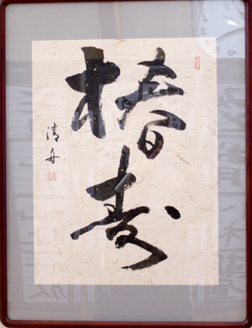 椿寿
清舟